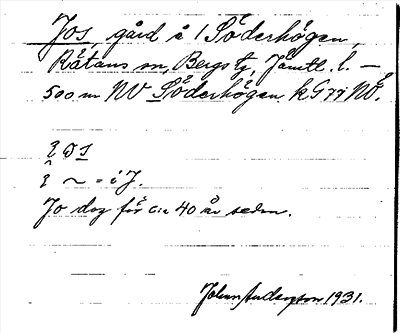 Jos, gård å 1 Söderhögen,
Råtans sn, Bergs tg, Jämtl. l. —
500 m NV Söderhögen, k G 77 NÖ.
i J.
Jo dog för c:a 40 år sedan.
Johan Andersson 1931.